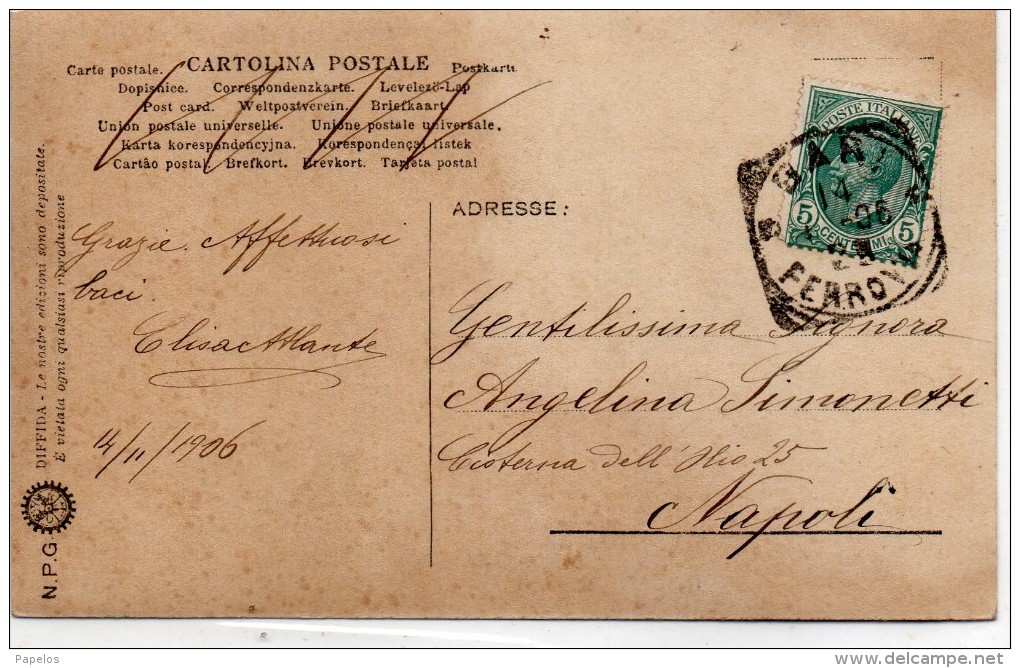 Carte postale. CARTOLINA POSTALE Postkarte
Dopisnice. Correspondenzkarte. Levelező-Lap
Post card. Weltpostverein. Briefkaart.
Union postale universelle. Unione postale universale.
Karta korespondencyjna. Korespondenčai listek
Cartão postal. Brefkort. Brevkort. Tarjeta postal
POSTE ITALIANE
5 CENTESIMI 5
BARI
14
-06
FERROVIA
ADRESSE:
Grazie. Affettuosi
baci.
Elisa Atlante
14/11/1906
Gentilissima Signora
Angelina Simonetti
Cisterna dell'Olio 25
Napoli
DIFFIDA - Le nostre edizioni sono depositate.
È vietata ogni qualsiasi riproduzione
N.P.G.
Papelos
www.delcampe.net